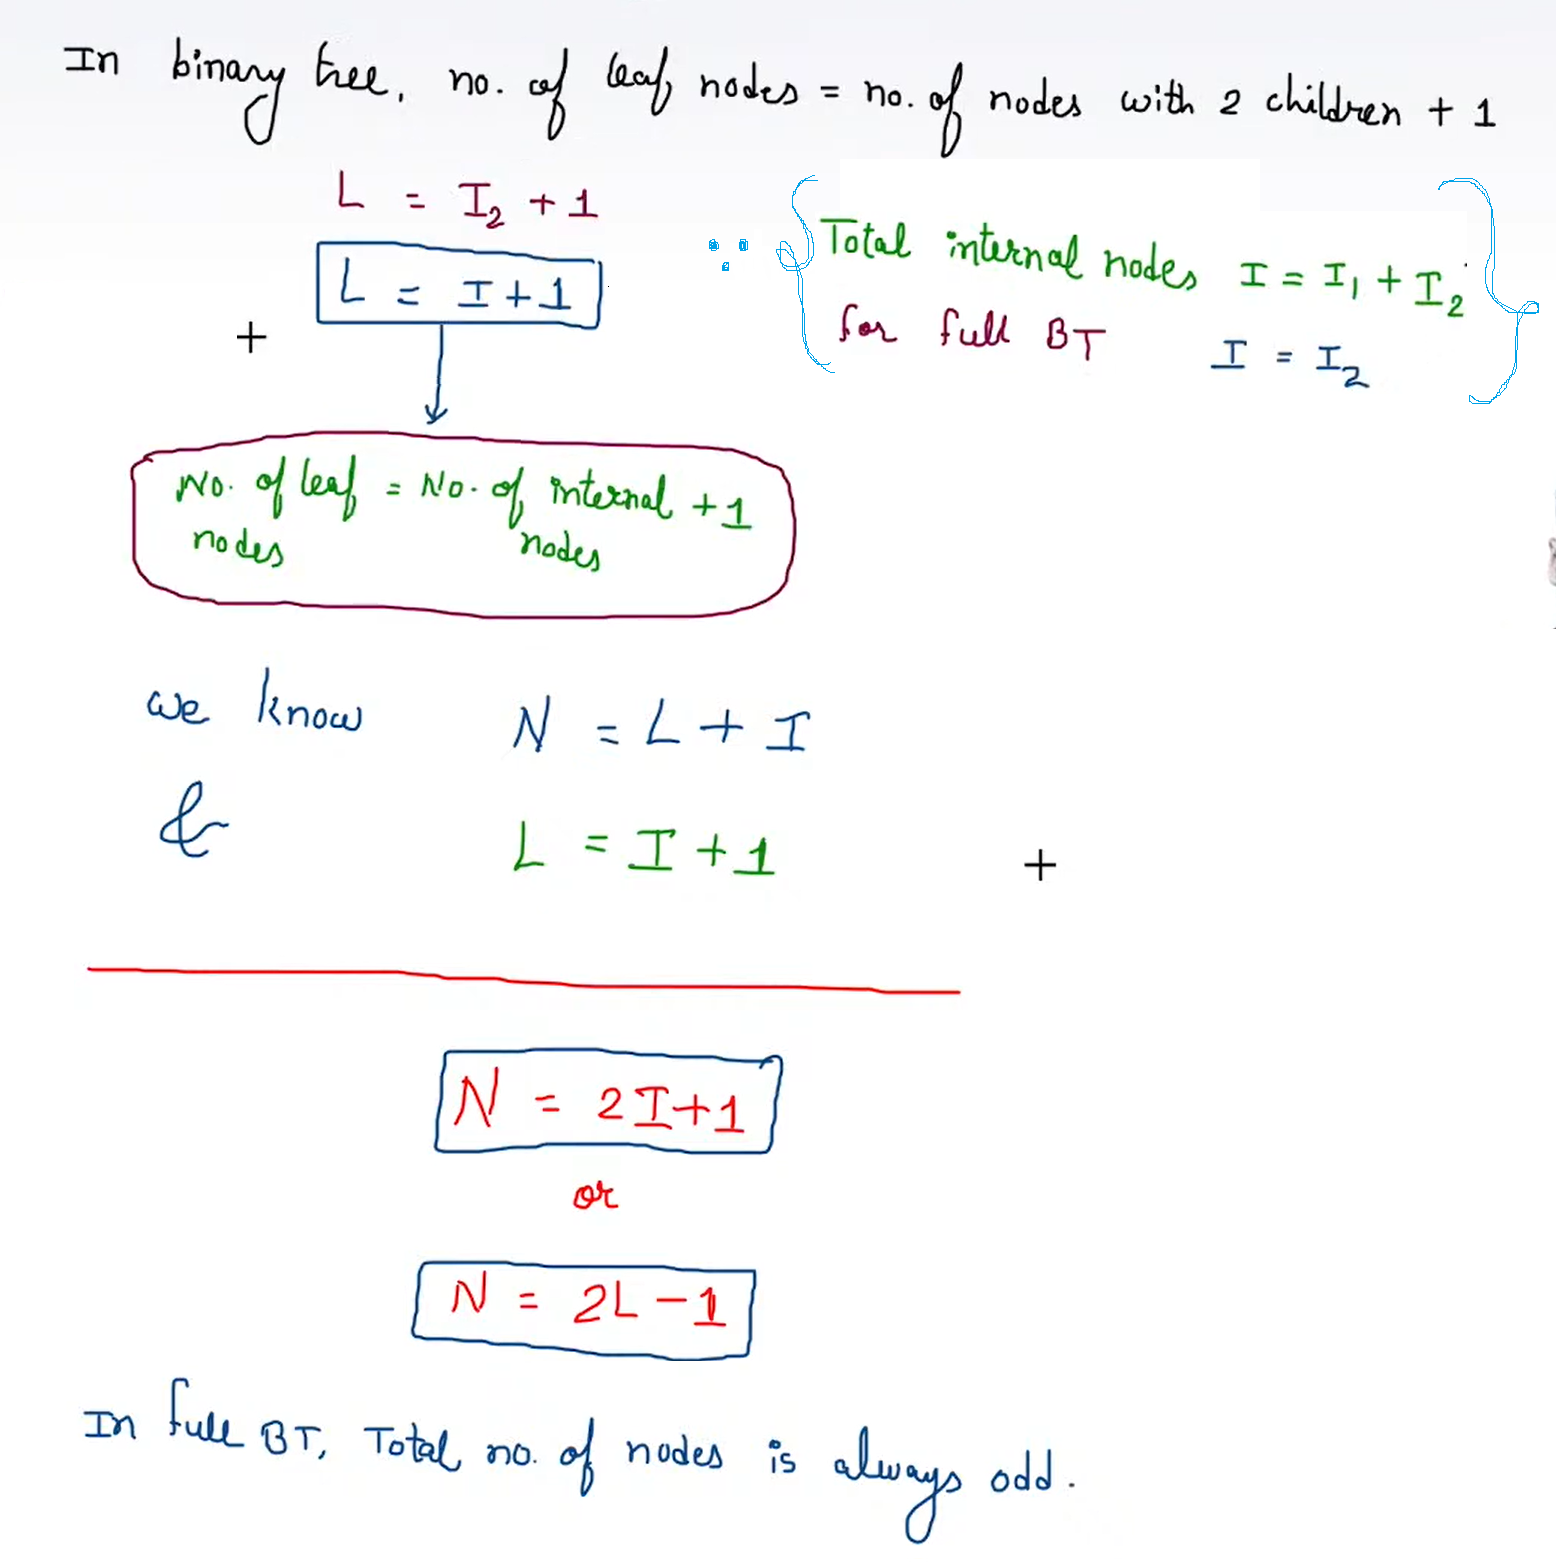 In binary tree, no. of leaf nodes = no. of nodes with 2 children + 1
L = I₂ + 1
L = I + 1
∵ { Total internal nodes I = I₁ + I₂
for full BT I = I₂ }
+
No. of leaf nodes = No. of internal nodes + 1
we know N = L + I
& L = I + 1
+
N = 2I + 1
or
N = 2L - 1
In full BT, Total no. of nodes is always odd.